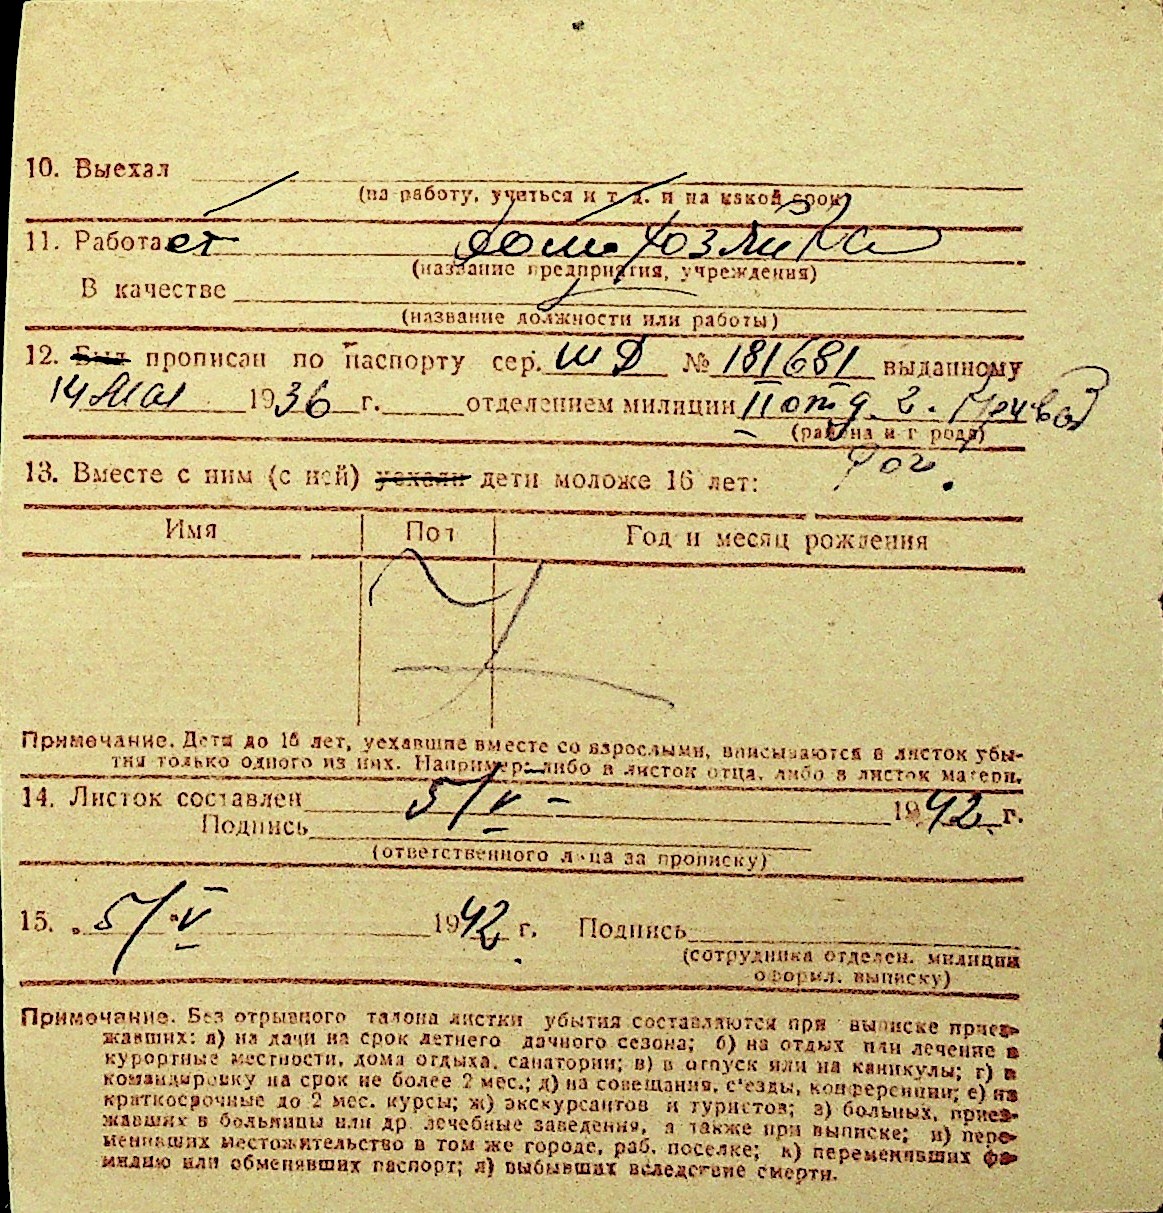 10. Выехал
(на работу, учиться и т. д. и на какой срок)
11. Работает домохозяйка
(название предприятия, учреждения)
В качестве
(название должности или работы)
12. Был прописан по паспорту сер. ШД № 181681 выданному
14 Мая 1936 г. отделением милиции II отд. г.
(района и города)
13. Вместе с ним (с ней) уехали дети моложе 16 лет:
Имя Пол Год и месяц рождения
Примечание. Дети до 16 лет, уехавшие вместе со взрослыми, вписываются в листок убы-
тия только одного из них. Например: либо в листок отца, либо в листок матери.
14. Листок составлен 5/V - 1942 г.
Подпись
(ответственного лица за прописку)
15. „ 5/V 1942 г. Подпись
(сотрудника отделен. милиции
оформл. выписку)
Примечание. Без отрывного талона листки убытия составляются при выписке приез-
жавших: а) на дачи на срок летнего дачного сезона; б) на отдых или лечение в
курортные местности, дома отдыха, санатории; в) в отпуск или на каникулы; г) в
командировку на срок не более 2 мес.; д) на совещания, с'езды, конференции; е) на
краткосрочные до 2 мес. курсы; ж) экскурсантов и туристов; з) больных, приез-
жавших в больницы или др. лечебные заведения, а также при выписке; и) пере-
менивших местожительство в том же городе, раб. поселке; к) переменивших фа-
милию или обменявших паспорт; л) выбывших вследствие смерти.